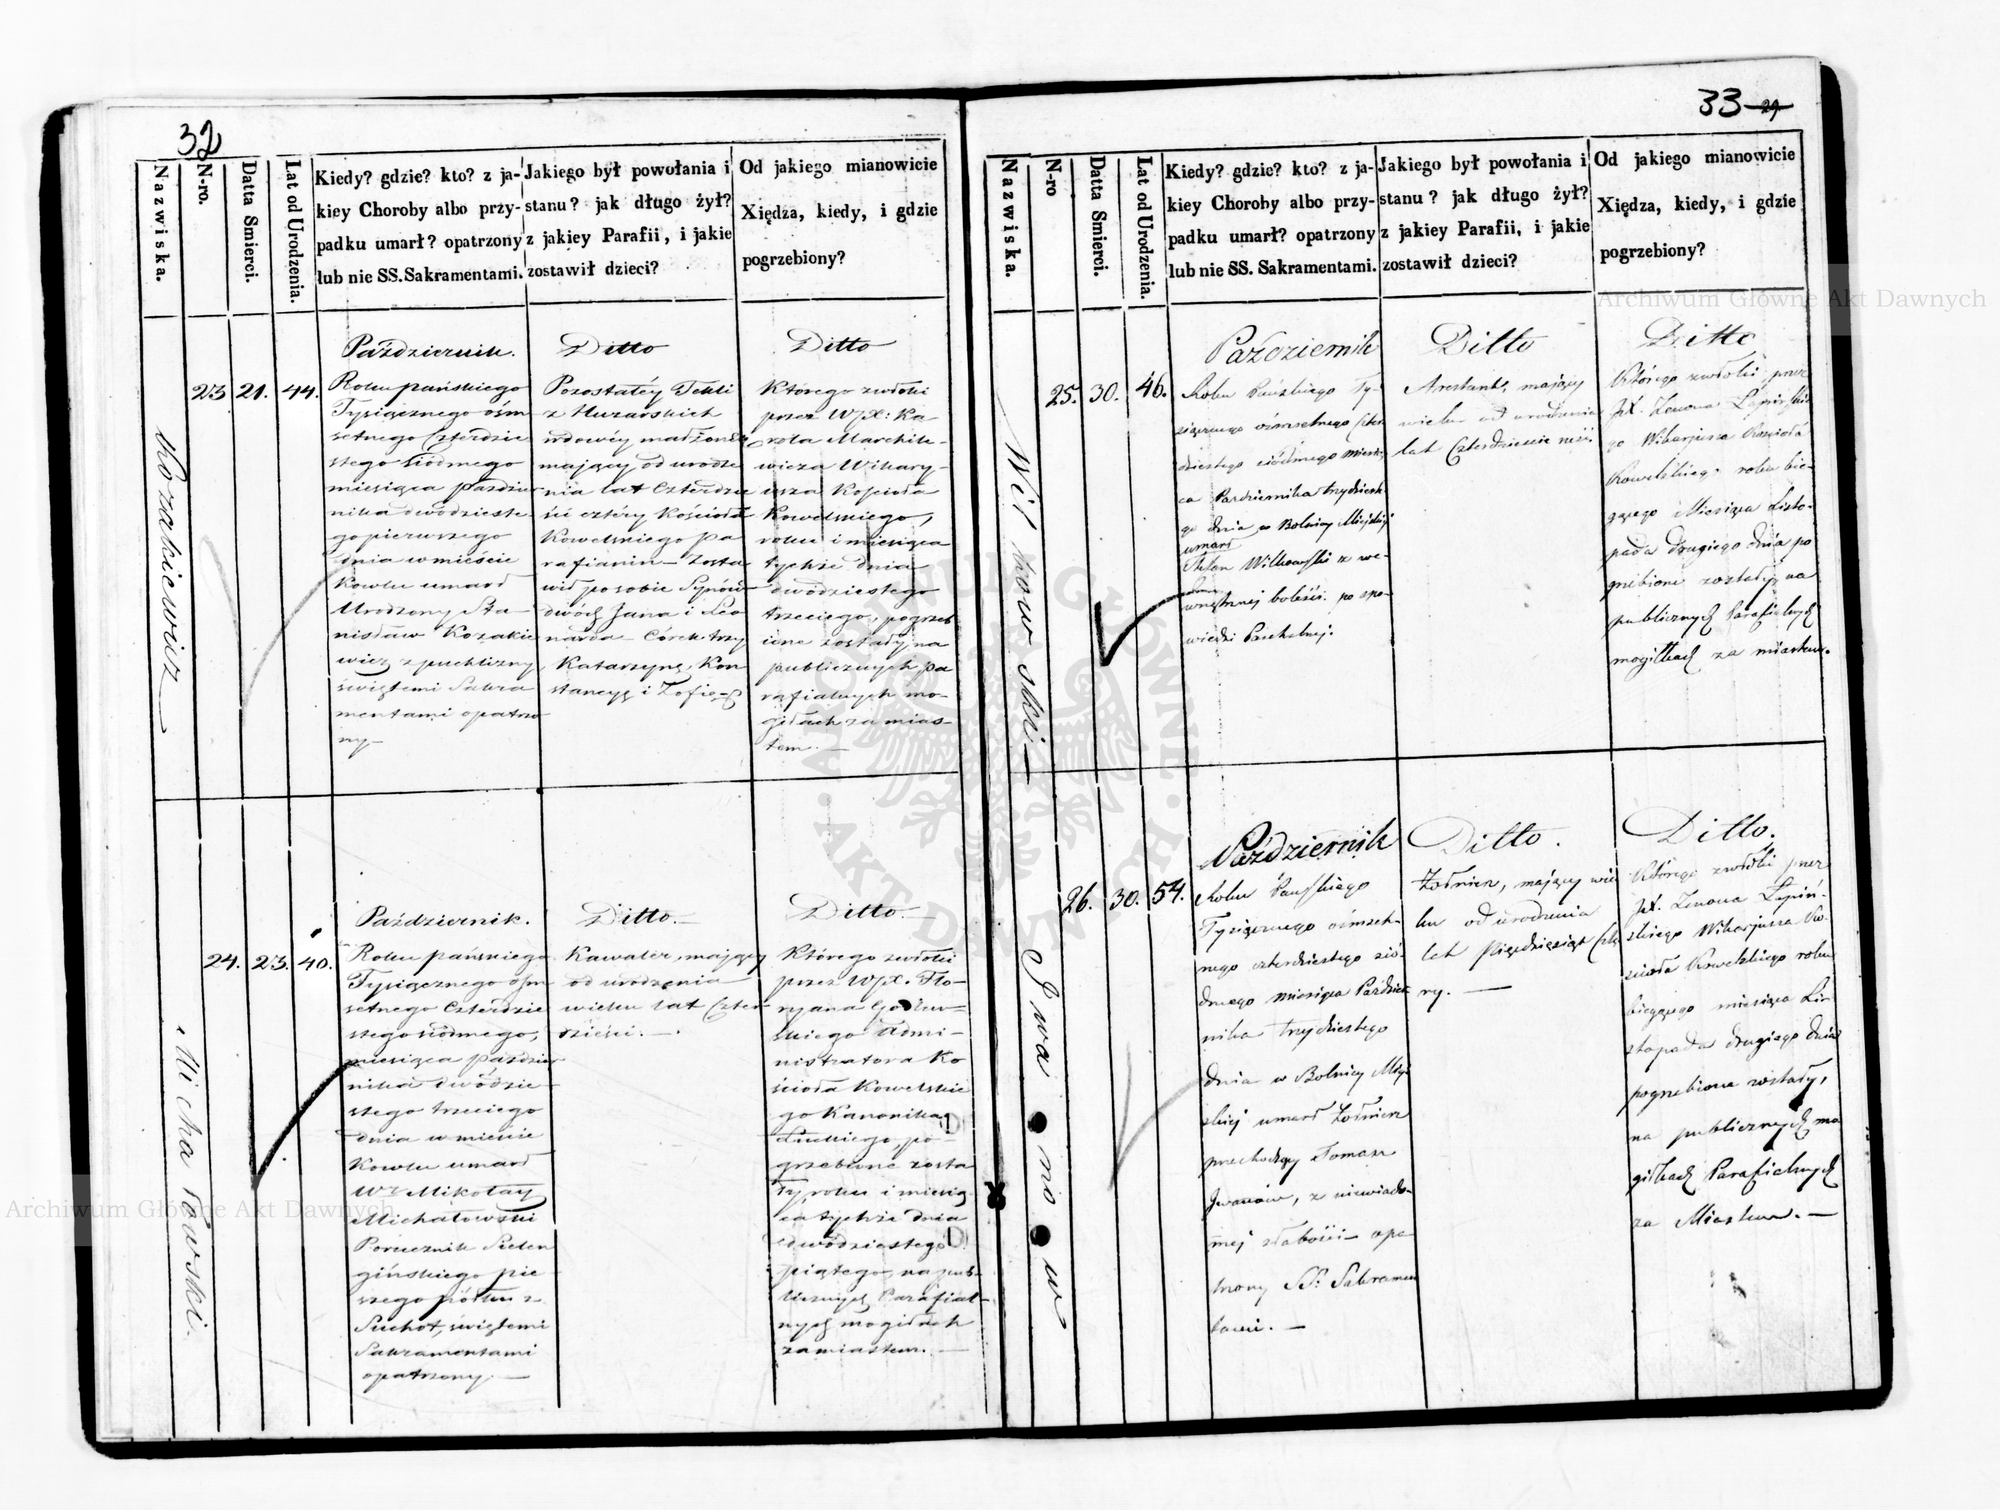 32
Nazwiska.
N-ro.
Datta Śmierci.
Lat od Urodzenia.
Kiedy? gdzie? kto? z ja-
kiey Choroby albo przy-
padku umarł? opatrzony
lub nie SS. Sakramentami.
Jakiego był powołania i
stanu? jak długo żył?
z jakiey Parafii, i jakie
zostawił dzieci?
Od jakiego mianowicie
Xiędza, kiedy, i gdzie
pogrzebiony?
Kozakiewicz
23
21.
44.
Październik.
Roku pańskiego
Tysiącznego ośm
setnego Czterdzie
stego siódmego
miesiąca paździer
nika dwódzieste
go pierwszego
dnia w mieście
Kowlu umarł
Urodzony Sta
nisław Kozakie
wicz z puchliny
świętemi Sakra
mentami opatrzo
ny—
Ditto
Pozostałéy Tekli
z Huzarskich
wdowéy małżonek
mający od urodze
nia lat Czterdzie
ści cztéry Kościoła
Kowelskiego pa
rafianin— zosta
wił po sobie Synów
dwóch Jana i Leo
narda— Córek trzy
Katarzynę, Kon
stancyę i Zofię—
Ditto
Którego zwłoki
przez WJX: Ka
rola Marchile-
wicza Wikary-
usza Kościoła
Kowelskiego,
roku i miesiąca
tychże dnia
dwódziestego
trzeciego, pogrzeb
ione zostały na
publicznych pa
rafialnych mo-
giłach za mias-
tem.—
Michałowski.
24.
23.
40.
Październik.
Roku pańskiego
Tysiącznego ośm
setnego Czterdzie
stego siódmego,
miesiąca paździer
nika dwódzie-
stego trzeciego
dnia w mieście
Kowlu umarł
Wż Mikołay
Michałowski
Porucznik Selen
gińskiego pie
szego pólku z
Suchot, świętemi
Sakramentami
opatrzony.—
Ditto.—
Kawaler, mający
od urodzenia
wieku lat Czter
dzieści.—.
Ditto.—
Którego zwłoki
przez WJX. Flo-
ryana Godlew-
skiego Admi-
nistratora Ko
ścioła Kowelskie
go Kanonika
Łuckiego, po-
grzebione zosta
ły roku i miesią-
ca tychże dnia
dwódziestego
piątego, na pub-
licznych Parafial-
nych mogiłach
za miastem.—
33
29
Nazwiska.
N-ro
Datta Śmierci.
Lat od Urodzenia.
Kiedy? gdzie? kto? z ja-
kiey Choroby albo przy-
padku umarł? opatrzony
lub nie SS. Sakramentami.
Jakiego był powołania i
stanu? jak długo żył?
z jakiey Parafii, i jakie
zostawił dzieci?
Od jakiego mianowicie
Xiędza, kiedy, i gdzie
pogrzebiony?
Wilkowski—
25.
30.
46.
Październik
Roku Pańskiego Ty-
siącznego ośmsetnego Czter
dziestego siódmego miesią
ca Października trzydzieste
go dnia w Bolnicy Miejskiej
umarł
Stefan Wilkowski z we-
wnętrznej boleści. po spo-
wiedzi Paschalnej.
Ditto
Aresztant, mający
wieku od urodzenia
lat Czterdzieście sześć.
Ditto
Którego zwłoki przez
JX. Zenona Łapińskie
go Wikarjusza Kościoła
Kowelskiego roku bie-
żącego Miesiąca Listo-
pada drugiego dnia po
grzebione zostały, na
publicznych Parafialnych
mogiłkach za miastem.
Iwanow
26.
30.
54.
Październik
Roku Pańskiego
Tysiącznego ośmset-
nego czterdziestego sió-
dmego miesiąca Paździer
nika trzydziestego
dnia w Bolnicy Miej-
skiej umarł Żołnierz
przechodzący Tomasz
Iwanów, z niewiado-
mej słabości— opa-
trzony SS: Sakramen
tami.—
Ditto.
Żołnierz, mający wie
ku od urodzenia
lat Pięćdziesiąt Czte
ry.—
Ditto.
Którego zwłoki przez
JX. Zenona Łapiń-
skiego Wikarjusza Ko-
ścioła Kowelskiego roku
bieżącego miesiąca Li-
stopada drugiego dnia
pogrzebione zostały,
na publicznych mo
giłkach Parafialnych
za Miastem.—
Archiwum Główne Akt Dawnych
Archiwum Główne Akt Dawnych
ARCHIWUM GŁÓWNE AKT DAWNYCH